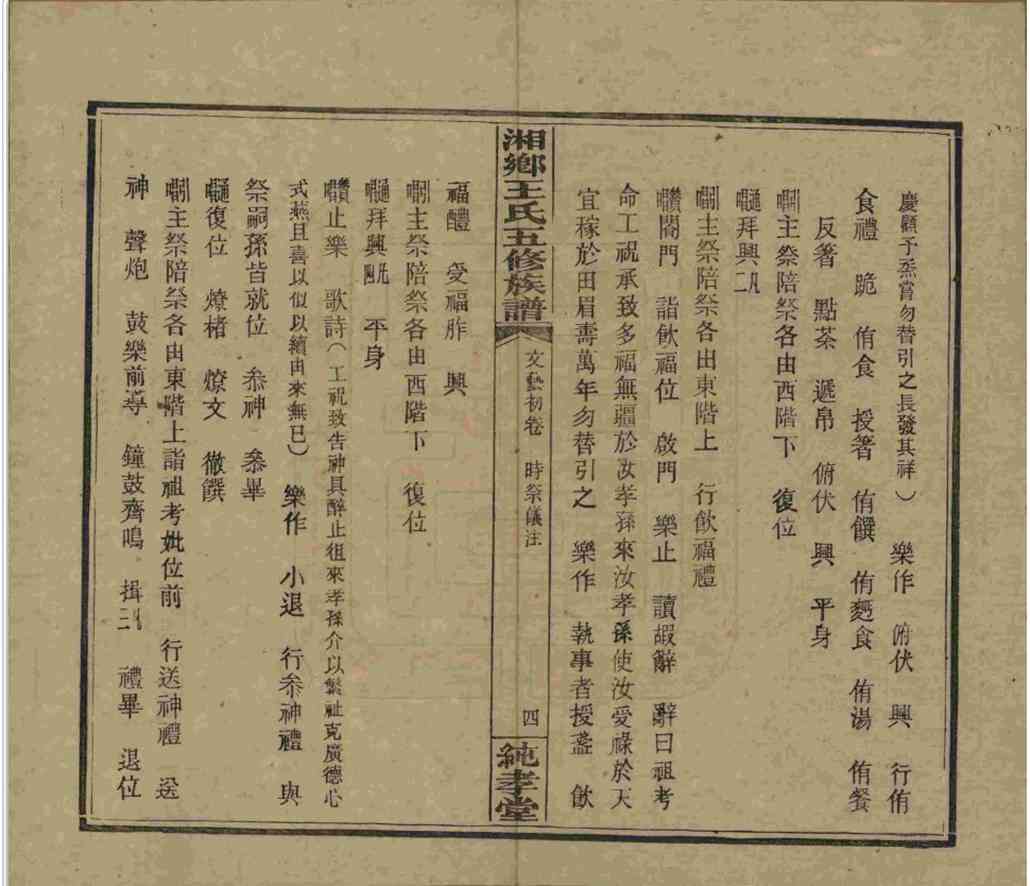 慶顯予烝嘗勿替引之長發其祥） 樂作 俯伏 興 行侑
食禮 跪 侑食 授箸 侑饌 侑麫食 侑湯 侑餐
反箸 點茶 遞帛 俯伏 興 平身
㘅主祭陪祭各由西階下 復位
嗵拜興凡二
㘅主祭陪祭各由東階上 行飲福禮
囋闔門 詣飲福位 啟門 樂止 讀嘏辭 辭曰祖考
命工祝承致多福無疆於汝孝孫來汝孝孫使汝受祿於天
宜稼於田眉壽萬年勿替引之 樂作 執事者授盞 飲
湘鄉王氏五修族譜
文藝初卷 時祭儀注
四
純孝堂
福醴 受福胙 興
㘅主祭陪祭各由西階下 復位
嗵拜興凡四 平身
囋止樂 歌詩（工祝致告神具醉止徂來孝孫介以繁祉克廣德心
式燕且喜以似以續由來無已） 樂作 小退 行叅神禮 與
祭嗣孫皆就位 叅神 叅畢
嗵復位 燎楮 燎文 徹饌
㘅主祭陪祭各由東階上詣祖考妣位前 行送神禮 送
神 聲炮 鼓樂前導 鐘鼓齊鳴 揖三 禮畢 退位